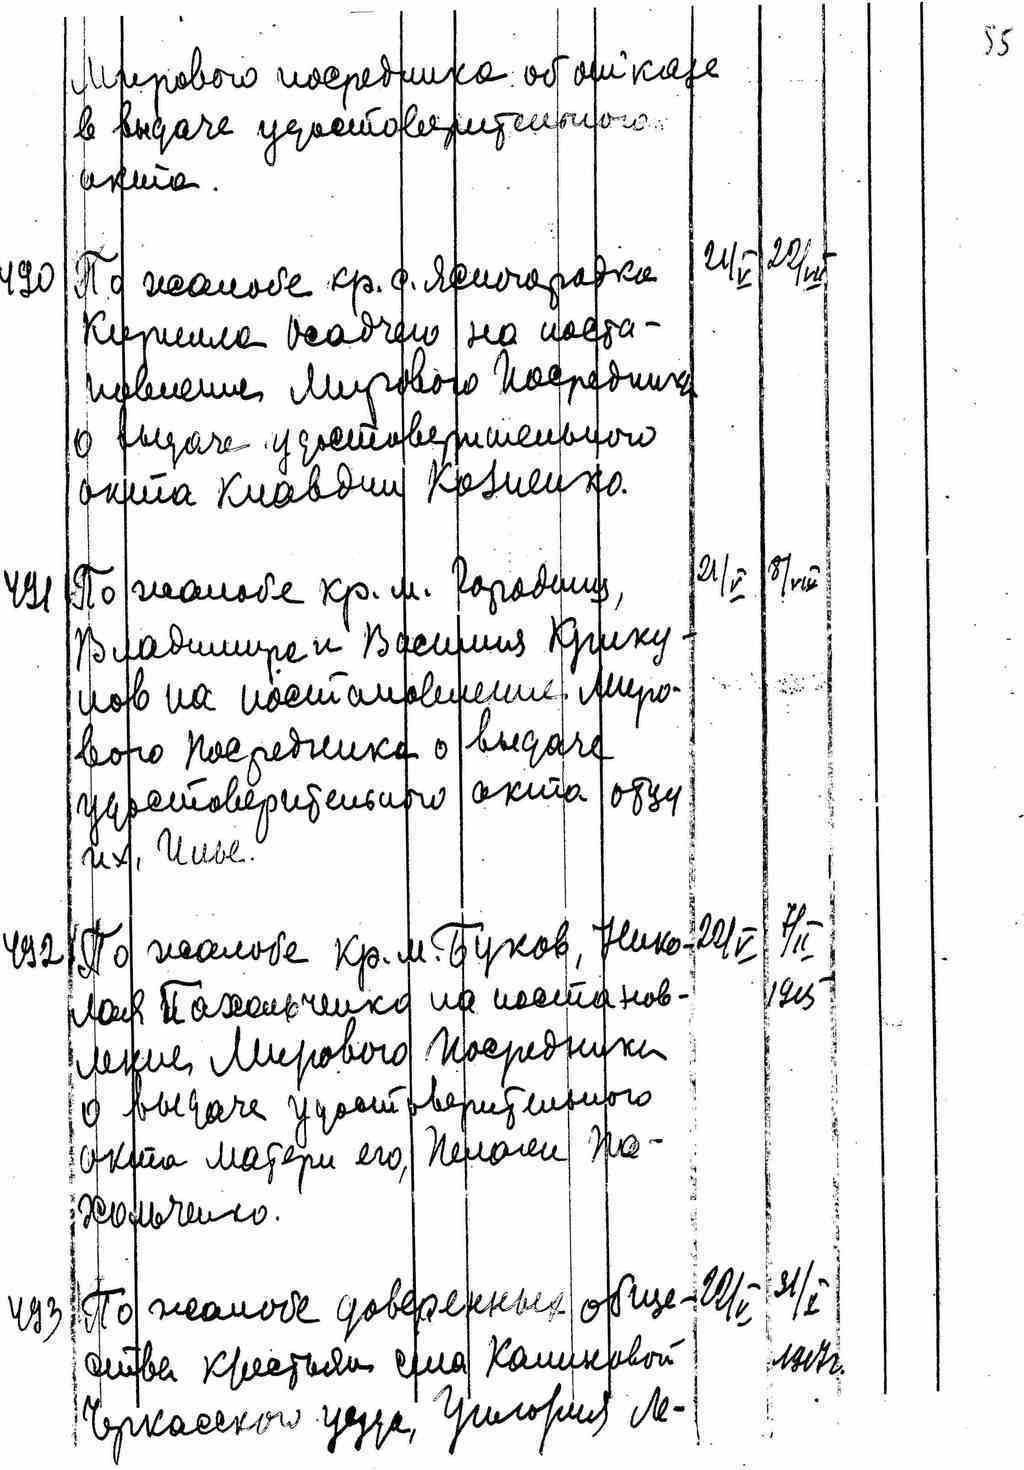 55
Мирового посредника об отказе
в выдаче удостоверительного
акта.
490 По жалобе кр. с. Ясногородка 21/V 22/VIII
Кирилла Осадчего на поста-
новление Мирового Посредника
о выдаче удостоверительного
акта Клавдии Козленко.
491 По жалобе кр. м. Городищ, 21/V 8/VIII
Владимира и Василия Крику-
нов на постановление Миро-
вого Посредника о выдаче
удостоверительного акта отцу
их, Илье.
492 По жалобе кр. м. Буков, Нико- 22/V 7/II
лая Пахольченко на постанов- 1915
ление Мирового Посредника
о выдаче удостоверительного
акта матери его, Пелагеи Па-
хольченко.
493 По жалобе доверенных обще- 22/V 31/X
ства крестьян села Калиновой 1917г.
Черкасского уезда, Григория Ле-